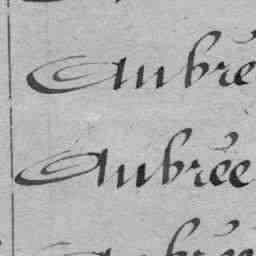 Aubré
Aubrée